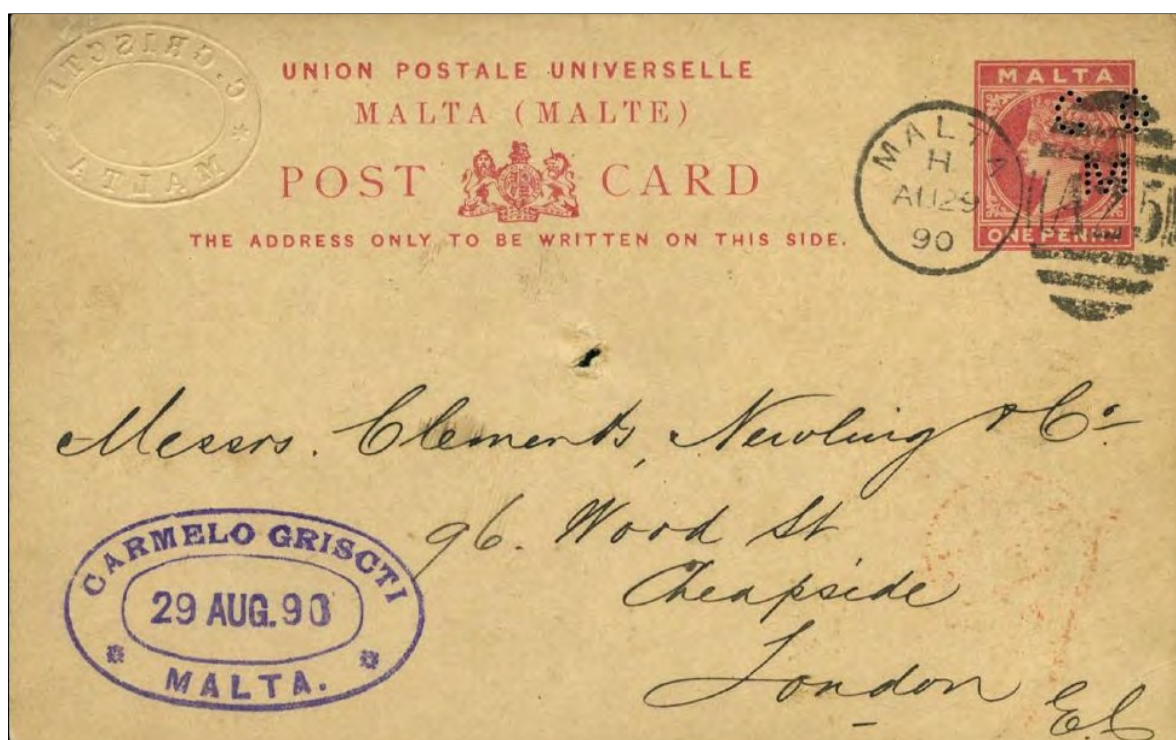 C. GRISCTI
MALTA
UNION POSTALE UNIVERSELLE
MALTA (MALTE)
POST CARD
THE ADDRESS ONLY TO BE WRITTEN ON THIS SIDE.
MALTA
H
AU 29
90
MALTA
ONE PENNY
A25
C G
M
Messrs. Clements, Newling & Co.
96. Wood St
Cheapside
London
E.C
CARMELO GRISCTI
29 AUG. 90
MALTA.